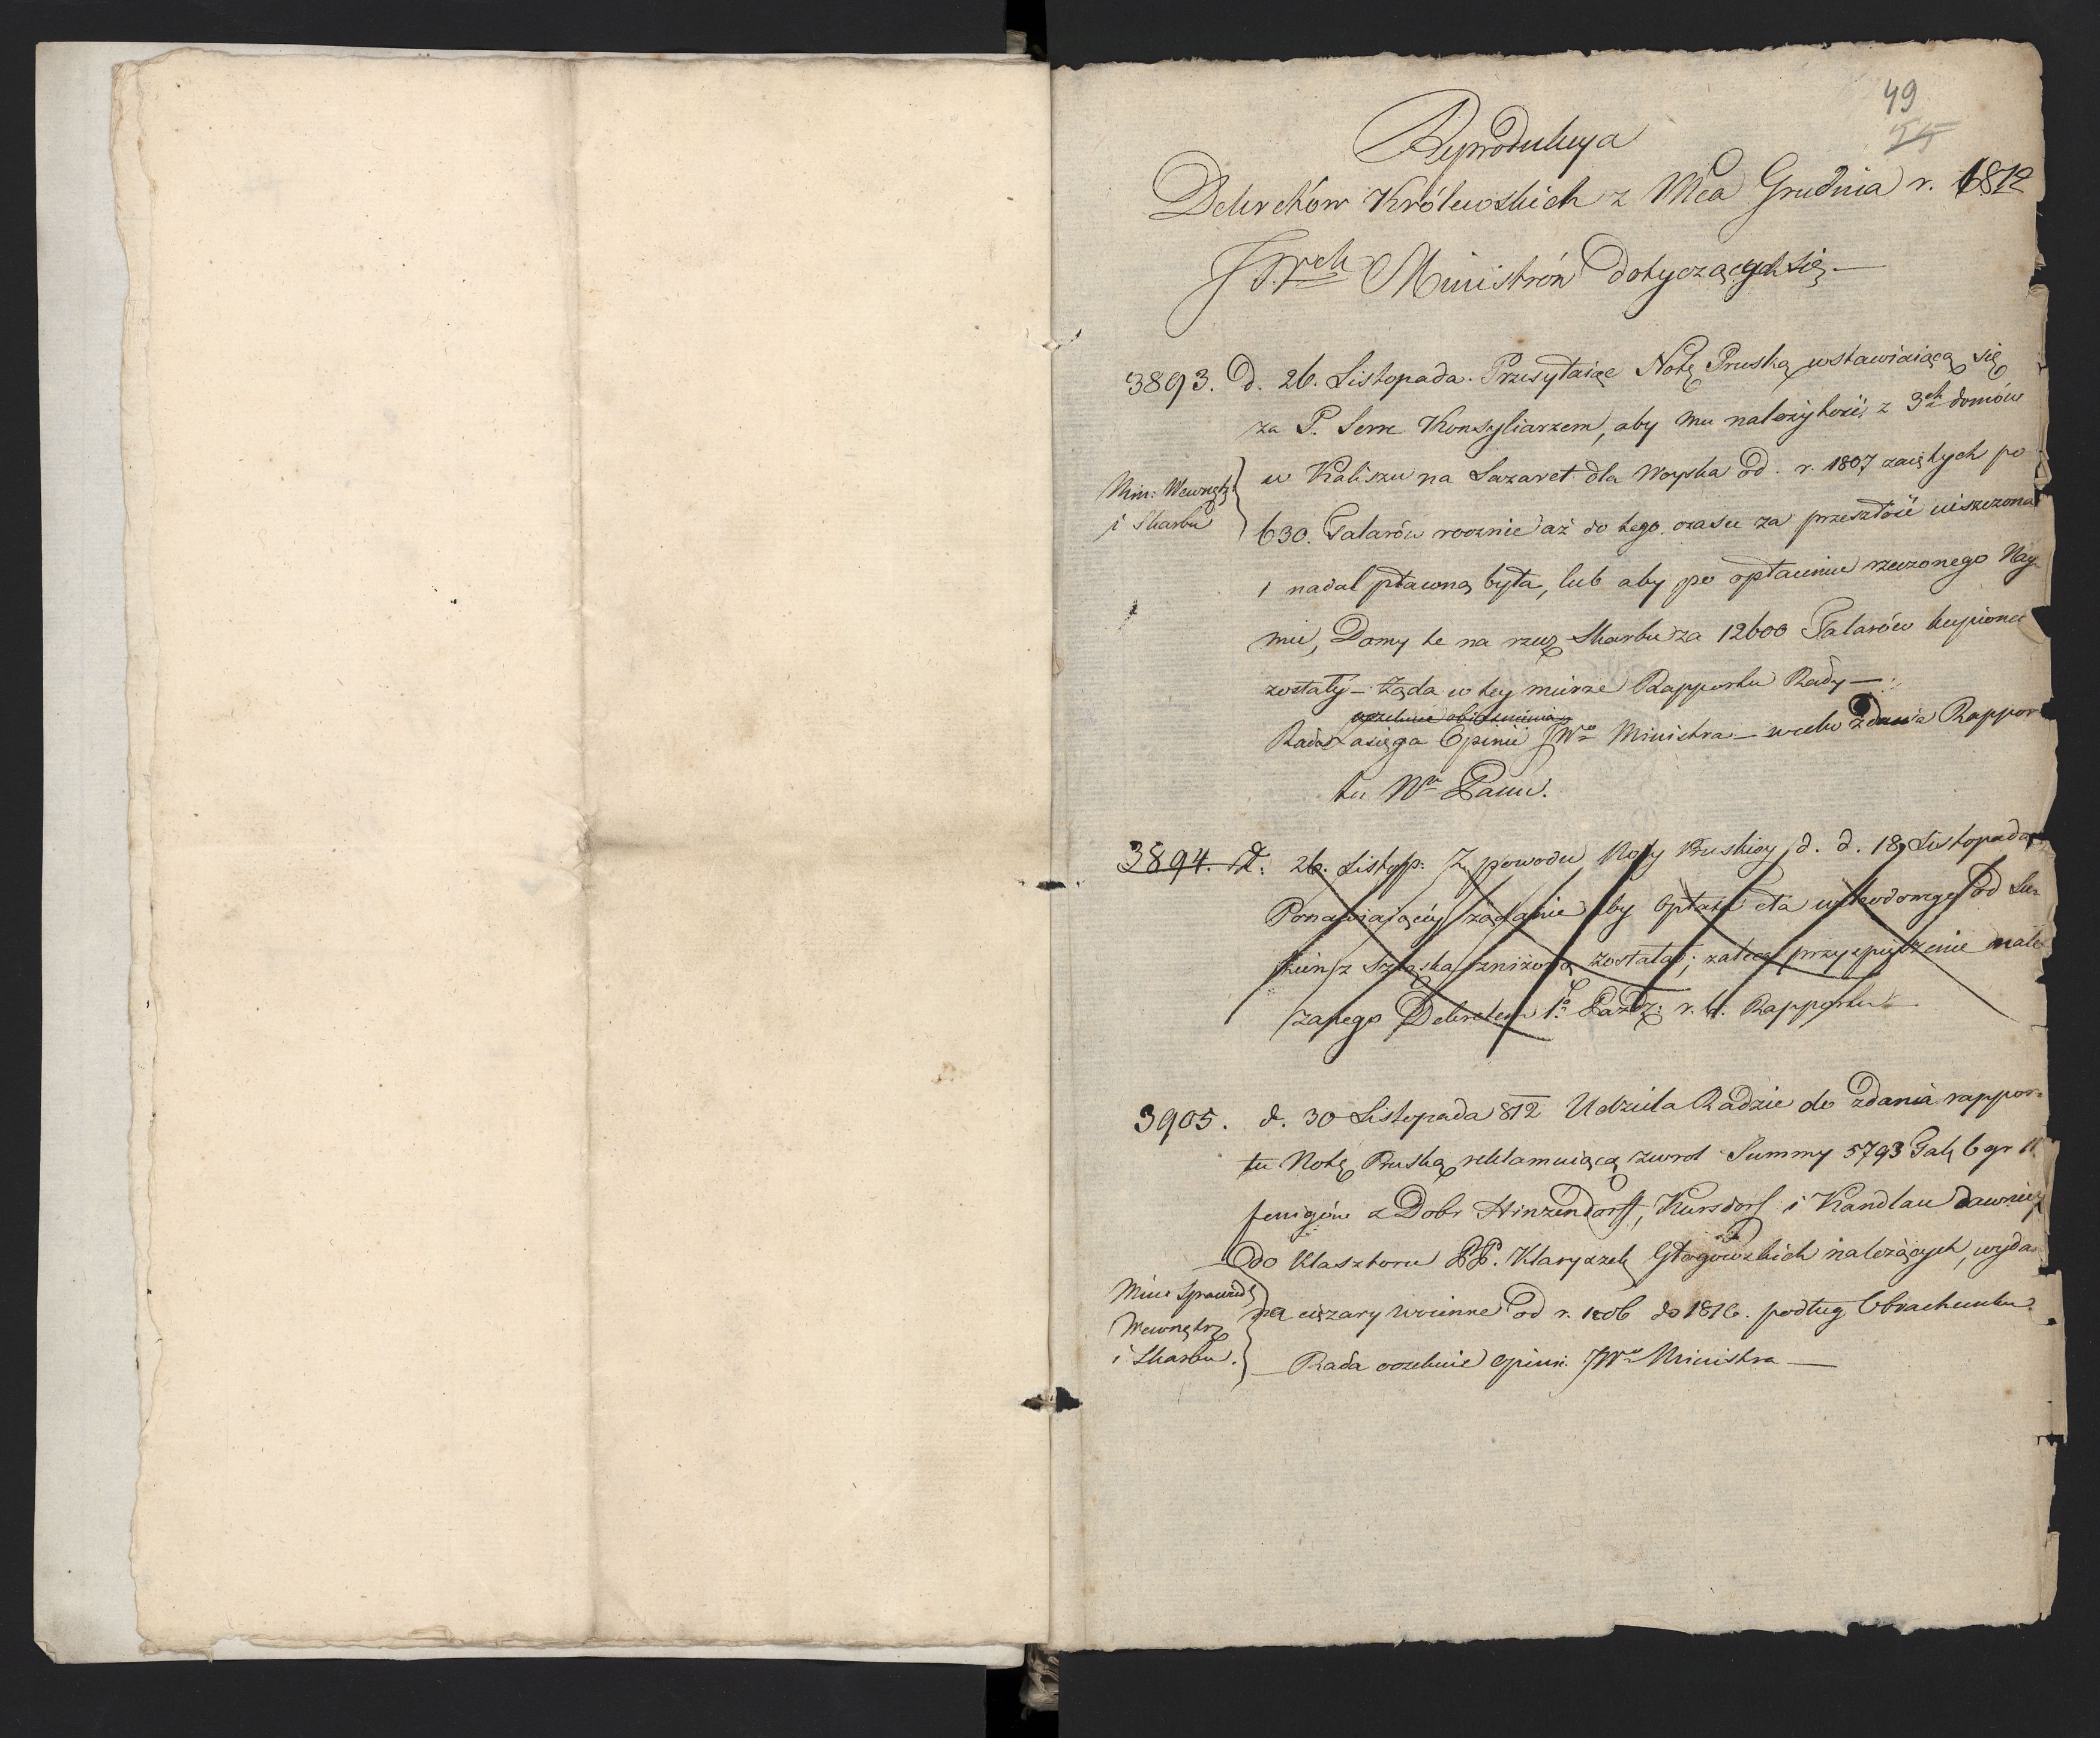 49
Reprodukcya
Dekretów Królewskich z Mca Grudnia r. 1812
JJWch Ministrów dotyczących się. —
3893. d. 26. Listopada. Przesyłaiąc Notę Pruską wstawiaiącą się
za P. Serre Konsyliarzem, aby mu należytość z 3ch domów
Min: Wewnętr:
i Skarbu
w Kaliszu na Lazaret dla Woyska od r. 1807 zaiętych po
630. Talarów rocznie aż do tego czasu za przeszłość uiszczona
i nadal płatną była, lub aby po opłaceniu rzeczonego Nay-
mu, Domy te na rzecz Skarbu za 12600 Talarów kupione
zostały — Żąda w tey mierze Rapportu Rady —
Rada zasięga Opinii JWo Ministra — w celu zdania Rappor
tu Nu Panu.
3894. d. 26. Listop: Z powodu Noty Pruskiey d. d. 18 Listopada
Ponawiaiącéy żądanie aby Opłata cła wchodowego od Su-
kien z Szląska zniżoną została; zaleca przyspieszenie naka
zanego Dekretem 1o Paźdz: r. b. Rapportu —
3905. d. 30 Listopada 812 Udziela Radzie do zdania rappor-
tu Notę Pruską reklamuiącą zwrot Summy 5793 Tal: 6 gr 11
fenigów z Dobr Hinzendorff, Kursdorf i Kandlau dawniey
do Klasztoru PP. Klaryszek Głogowskich należących, wyda
Mini Sprawied:
Wewnętrz
i Skarbu.
na ciężary woienne od r. 1806 do 1810. podług Obrachunku
— Rada oczekuie opinii JWo Ministra —